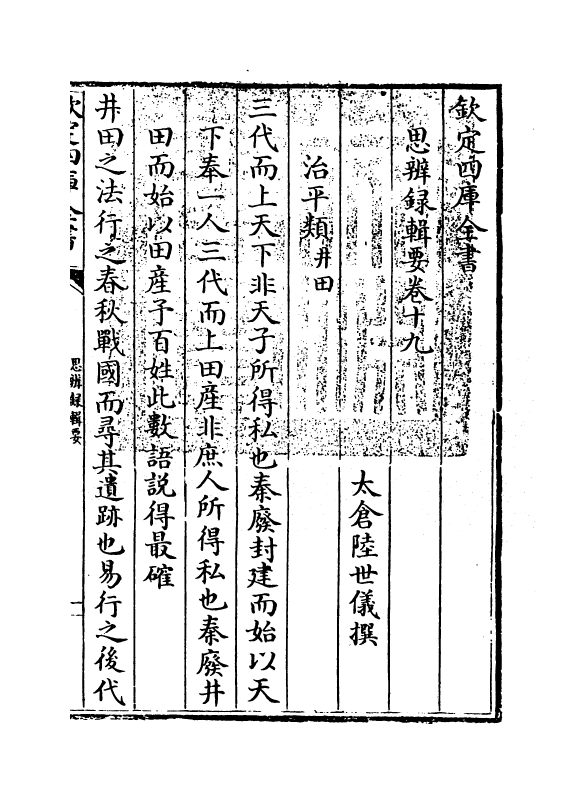 欽定四庫全書
思辨録輯要卷十九
太倉陸世儀撰
治平類井田
三代而上天下非天子所得私也秦廢封建而始以天
下奉一人三代而上田產非庶人所得私也秦廢井
田而始以田產予百姓此數語説得最確
井田之法行之春秋戰國而尋其遺跡也易行之後代
欽定四庫全書
思辨録輯要